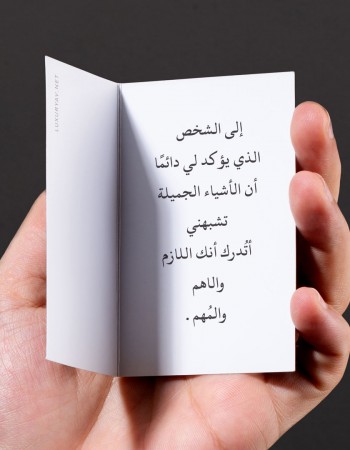 إلى الشخص
الذي يؤكد لي دائمًا
أن الأشياء الجميلة
تشبهني
أتُدرك أنك اللازم
والاهم
والمُهم .
LUXURYBY.NET